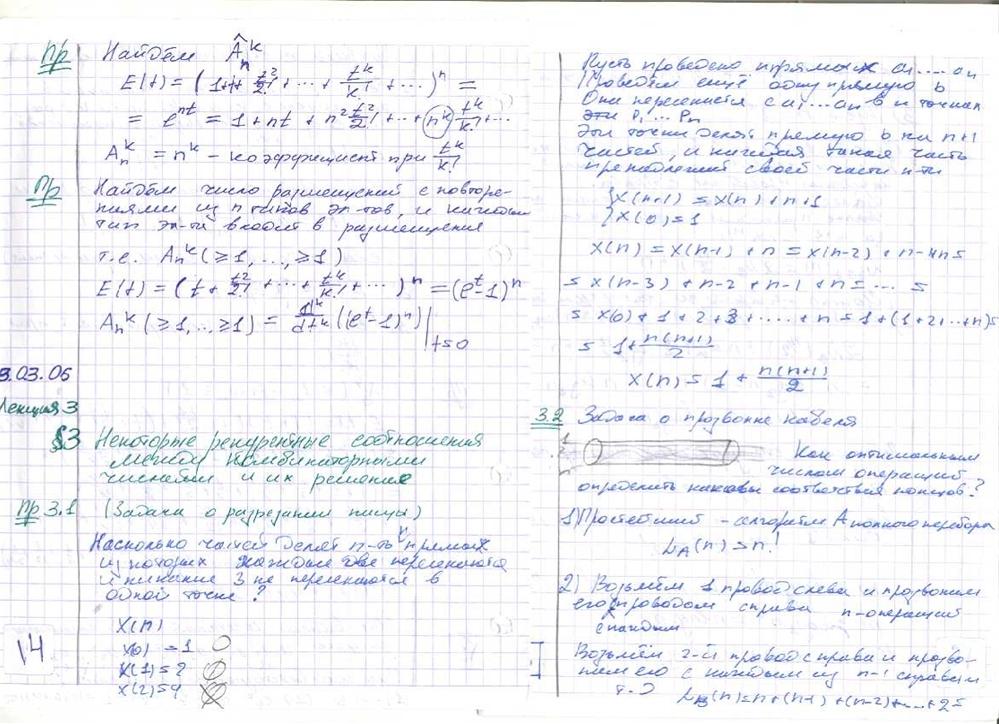 Пр Найдём Â_n^k
E(t) = (1+t+ t²/2! + ... + t^k/k! + ...)^n =
= e^{nt} = 1 + nt + n² t²/2! + ... + n^k t^k/k! + ...
A_n^k = n^k - коэффициент при t^k/k!
Пр Найдём число размещений с повторе-
ниями из n типов эл-тов, и каждый
тип эл-та входит в размещения
т.е. A_n^k (≥1, ..., ≥1)
E(t) = (t + t²/2! + ... + t^k/k! + ...)^n = (e^t-1)^n
A_n^k (≥1, .., ≥1) = d^k/dt^k ((e^t-1)^n)|_{t=0}
3.03.06
Лекция 3
§3 Некоторые рекурентные соотношения
между комбинаторными
числами и их решение
Пр 3.1 (Задача о разрезании пиццы)
Насколько частей делят n-ть прямых
из которых каждые две пересекаются
и никакие 3 не пересекаются в
одной точке?
X(n)
X(0) = 1
X(1) = 2
X(2) = 4
14
Пусть проведено n прямых a1....an
Проведём ещё одну прямую b
Они пересекутся с a1...an в n точках
эти P1...Pn
Эти точки делят прямую b на n+1
частей, и каждая такая часть
своей части
{X(n+1) = X(n) + n+1
{X(0) = 1
X(n) = X(n-1) + n = X(n-2) + n-1+n =
= X(n-3) + n-2 + n-1 + n = ... =
= X(0) + 1 + 2 + 3 + ... + n = 1 + (1+2+...+n) =
= 1 + n(n+1)/2
X(n) = 1 + n(n+1)/2
3.2 Задача о прозвоне кабеля
1
2
n
Как оптимальным
числом операций
определить каковы соответствия концов?
1) Простейший - алгоритм A полного перебора
L_A(n) = n!
2) Возьмём 1 провод слева и прозвоним
его проводом справа n-операций
с каждым
Возьмём 2-й провод справа и прозво-
ним его с каждым из n-1 справа и
т.д L_B(n) = n + (n-1) + (n-2) + ... + 2 =